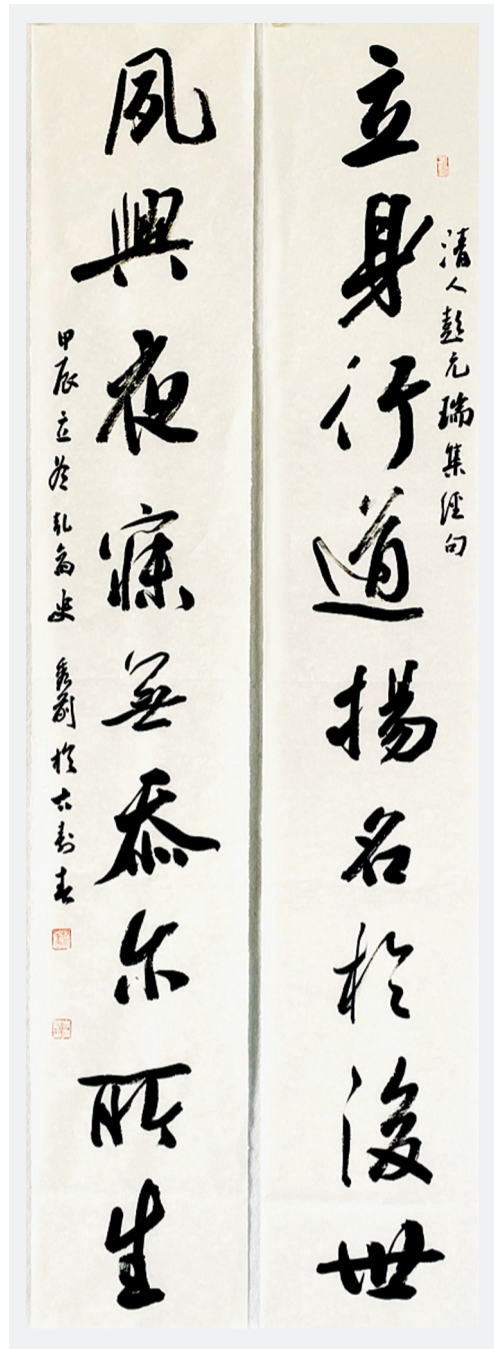 立身行道揚名於後世
清人彭元瑞集經句
夙興夜寐無忝尔所生
甲辰立冬
於古壽春